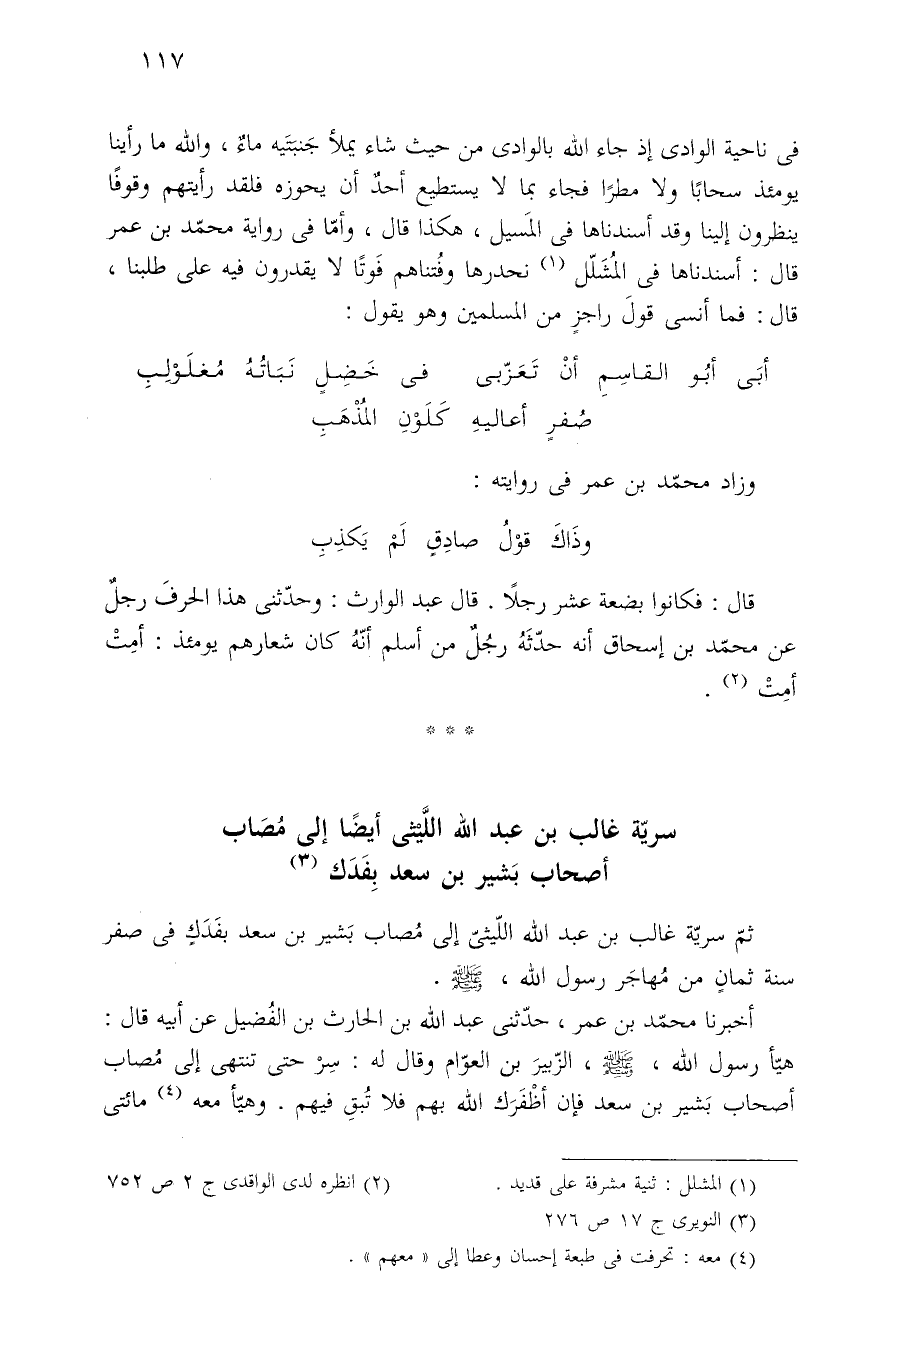 ١١٧
فى ناحية الوادى إذ جاء الله بالوادى من حيث شاء يملأ جَنبَتَيه ماءً ، والله ما رأينا
يومئذ سحابًا ولا مطرًا فجاء بما لا يستطيع أحدٌ أن يحوزه فلقد رأيتهم وقوفًا
ينظرون إلينا وقد أسندناها فى المَسيل ، هكذا قال ، وأمّا فى رواية محمّد بن عمر
قال : أسندناها فى المُشَلّل (١) نحدرها وفُتناهم فَوتًا لا يقدرون فيه على طلبنا ،
قال : فما أنسى قولَ راجزٍ من المسلمين وهو يقول :
أبَى أبُو القاسِمِ أنْ تَعَزّبى فى خَضِلٍ نَبَاتُهُ مُغلَوْلِبِ
صُفرٍ أعاليهِ كَلَوْنِ المُذْهَبِ
وزاد محمّد بن عمر فى روايته :
وذَاكَ قوْلُ صادِقٍ لَمْ يَكذِبِ
قال : فكانوا بضعة عشر رجلًا . قال عبد الوارث : وحدّثنى هذا الحرفَ رجلٌ
عن محمّد بن إسحاق أنه حدّثَهُ رجُلٌ من أسلم أنّهُ كان شعارهم يومئذ : أمِتْ
أمِتْ (٢) .
* * *
سريّة غالب بن عبد الله اللَّيْثى أيضًا إلى مُصَاب
أصحاب بَشير بن سعد بِفَدَك (٣)
ثمّ سريّة غالب بن عبد الله اللّيثىّ إلى مُصاب بَشير بن سعد بفَدَكٍ فى صفر
سنة ثمانٍ من مُهاجَر رسول الله ، ﷺ .
أخبرنا محمّد بن عمر ، حدّثنى عبد الله بن الحارث بن الفُضيل عن أبيه قال :
هيّأ رسول الله ، ﷺ ، الزّبيرَ بن العوّام وقال له : سِرْ حتى تنتهى إلى مُصاب
أصحاب بَشير بن سعد فإن أظْفَرَك الله بهم فلا تُبقِ فيهم . وهيّأ معه (٤) مائتى
(١) المشلل : ثنية مشرفة على قديد . (٢) انظره لدى الواقدى ج ٢ ص ٧٥٢
(٣) النويرى ج ١٧ ص ٢٧٦
(٤) معه : تحرفت فى طبعة إحسان وعطا إلى « معهم » .